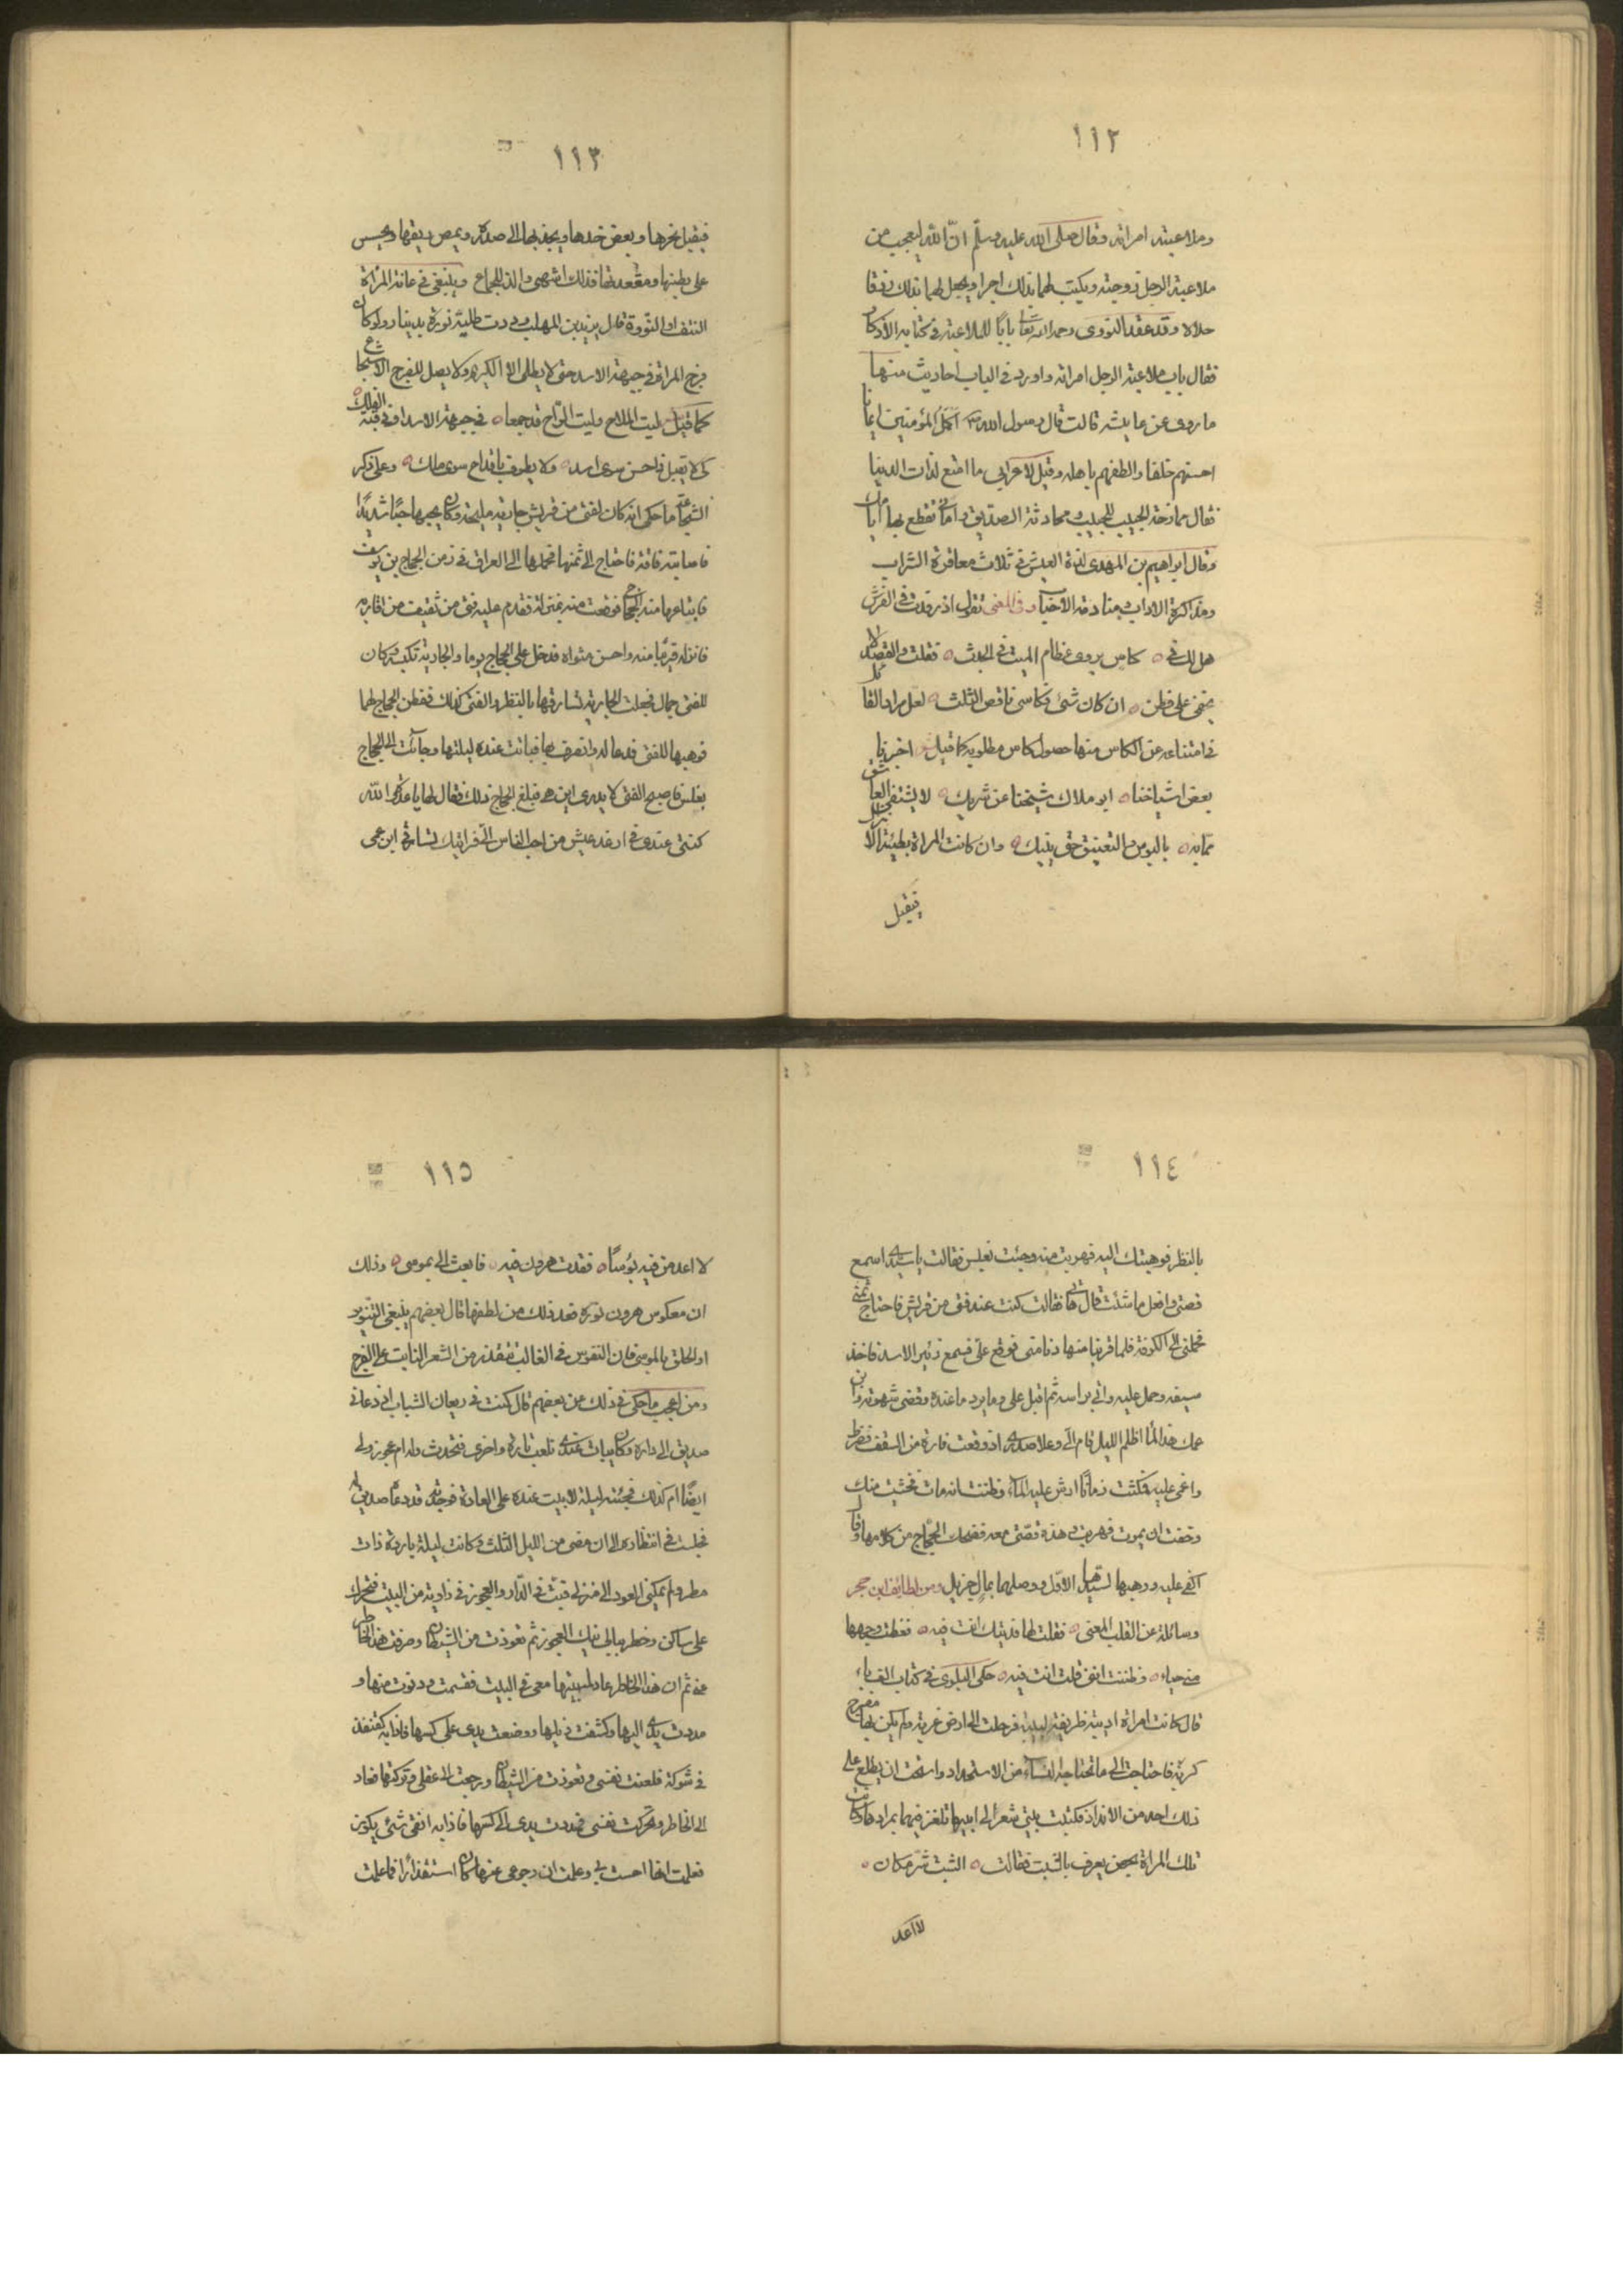 ١١٢
وملاعبته امراته وقال صلى الله عليه وسلم ان الله ليعجب من
ملاعبة الرجل زوجته ويكتب لهما بذلك اجرا ويجعل لهما بذلك رزقا
حلالا وقد عقد النووى رحمه الله تعالى بابا للملاعبة فى كتابه الأذكار
فقال باب ملاعبة الرجل امراته واورد فى الباب احاديث منها
ما روى عن عايشه قالت قال رسول الله اكمل المؤمنين ايمانا
احسنهم خلقا والطفهم باهله وقيل لاعرابى ما امتع لذات الدنيا
فقال ممازحة الحبيب للحبيب ومحادثة الصديق وامانى تقطع بها ايامك
وقال ابراهيم بن المهدى لذة العيش فى ثلاث معاقرة الشراب
ومذاكرة الاداب ومنادمة الاخيار وفى المعنى تقول اذ رقدت فى الفرش
هل لك فى ه كاس يروى عظام الميت فى الجدث ه فقلت والقصد لا
يخفى على فطن ه ان كان شئ فكاسى ناقص الثلث ه لعل مراد القائل
فى امتناعه عن الكاس منها حصول كاس مطلوبه كما قيل اخبرنا
بعض اشياخنا ه ابو ملاك شيخنا عن شريك ه لا يشتفى العاشق
مما به ه بالبوس والتعنيق حتى ينيك ه وان كانت المراة بطيئة الانزال
فيقبل
١١٣
فيقبل نحرها وبعض خدها ويجذبها الى صدره ويمص ريقها ويجس
على بطنها ومقعدتها فذلك اشهى والذ للجماع وينبغى فى عانة المراة
النتف او النورة قال يزيد بن المهلب وددت طلية نورة بدينار ولو كان
فرج المراة فى جبهة الاسد حتى لا يطلى الا الكريم ولا يصل للفرج الا شجاع
كما قيل ليت الملاح وليت الراح قد جمعا ه فى جبهة الاسد او فى قبة الفلك ه
كى لا يقبل ذا حسن سوى اسد ه ولا يطوف باقداح سوى ملك ه وعلى ذكر
الشجاعة ما حكى انه كان لفتى من قريش جارية مليحة وكان يحبها حبا شديدا
فاصابته فاقة فاحتاج الى ثمنها فحملها الى العراق فى زمن الحجاج بن يوسف
فابتاعها منه الحجاج فوقعت منه بمنزلة فقدم عليه فتى من ثقيف من اقاربه
فانزله قريبا منه واحسن مثواه فدخل على الحجاج يوما والجارية تكبسه وكان
للفتى جمال فجعلت الجارية تسارقه بالنظر والفتى كذلك ففطن الحجاج لهما
فوهبها للفتى فدعا له وانصرف بها فباتت عنده ليلتها وجائت الى الحجاج
بغلس فاصبح الفتى لا يدرى اين هى فبلغ الحجاج ذلك فقال لها يا عدوة الله
كنتى عندى فى ارغد عيش من احب الناس الى فرايتك تسارقى ابن عمى
١١٤
بالنظر فوهبتك اليه فهربت منه وجئت بغلس فقالت يا سيدى اسمع
قصتى وافعل ما شئت قال هاتى فقالت كنت عند فتى من قريش فاحتاج ثمنى
فحملنى الى الكوفة فلما قربنا منها دنا منى فوقع على فسمع زئير الاسد فاخذ
سيفه وحمل عليه واتى براسه ثم اقبل على وما برد ما عنده وقضى شهوته وابن
عمك هذا لما اظلم الليل قام الى وعلا صدرى اذ وقعت فارة من السقف فضرط
واغمى عليه فمكثت زمانا ارش عليه الماء وظننت انه مات فخشيت منك
وخفت ان يموت فهربت هذه قصتى معه فضحك الحجاج من كلامها وقال
اكتمى عليه ووهبها لسيدها الاول ووصلهما بمال جزيل ومن لطايف ابن حجر
وسائلة عن القلب المعنى ه فقلت لها فديتك انت فيه ه فغطت وجهها
منى حياء ه وظننت اننى قلت انت فيه ه حكى البلوى فى كتاب الف باء
قال كانت امراة اديبة ظريفة لبيبة فرحلت الى ارض غربة ولم يكن بها مفرج
كربة فاحتاجت الى ما تحتاج اليه النساء من الاستحداد واستحت ان يطلع على
ذلك احد من الانداد فكتبت بيتى شعر الى ابيها تلغز فيهما بمرادها وكانت
تلك المراة بحصن يعرف بالشبت فقالت ه الشبت شر مكان ه
لا اعد
١١٥
لا اعد من فيه بؤسا ه فقدت هرون فيه ه فابعث الى بموسى ه وذلك
ان معكوس هرون نوره فعد ذلك من لطفها قال بعضهم ينبغى التنوير
او الحلق بالموسى فان النفوس فى الغالب تتقذر من الشعر النابت على الفرج
ومن اعجب ما حكى فى ذلك عن بعضهم قال كنت فى ريعان الشباب اذ دعانى
صديق الى داره وكان يبات عندى تارة واخرى فنتحدث وله ام عجوز ولى
ايضا ام كذلك فجئته ليلة لابيت عنده على العادة فوجدته قد دعاه صديق له
فجلست فى انتظاره الى ان مضى من الليل الثلث وكانت ليلة باردة ذات
مطر ولم يمكنى العود الى منزلى فبت فى الدار والعجوز فى زاوية من البيت فتحرك
على ساكن وخطر ببالى نيك العجوز ثم تعوذت من الشيطان وصرفت هذا الخاطر
عنى ثم ان هذا الخاطر عاد لمبيتها معى فى البيت فقمت ودنوت منها و
مددت يدى اليها وكشفت ذيلها ووضعت يدى على كسها فاذا به كقنفذ
فى شوكه فلعنت نفسى وتعوذت من الشيطان ورجعت الى عقلى وتركتها فعاد
الى الخاطر وتحركت نفسى فمددت يدى الى كسها فاذا به انقى شئ يكون
فعلمت انها احست بى وعلمت ان رجوعى عنها كان استقذارا فاعلمت